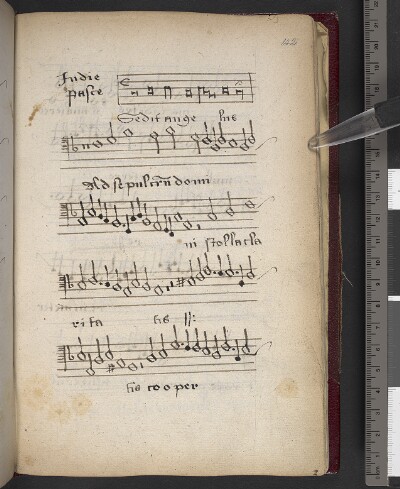 142
In die
pasce
Sedit ange lus
Ad sepulcru domi
ni stolla cla
rita tis
tis cooper